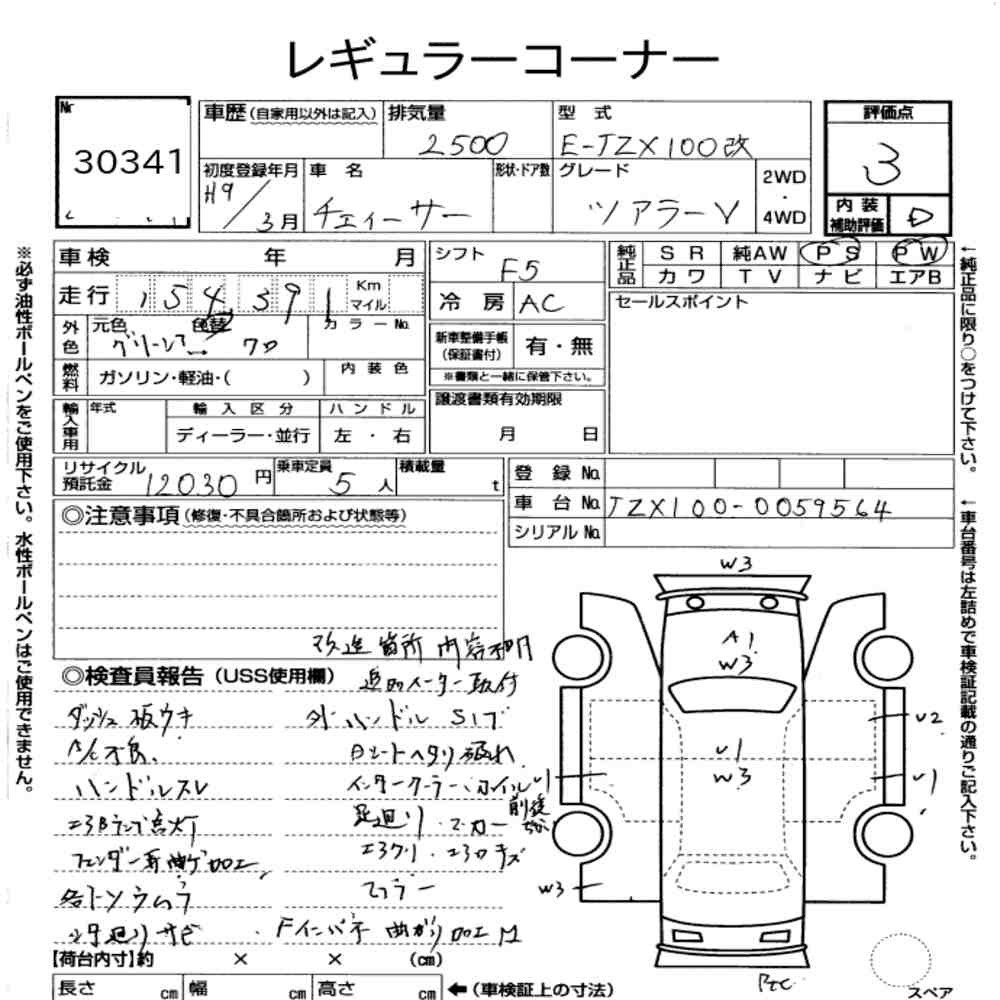 レギュラーコーナー
Nr 30341
車歴 (自家用以外は記入)
排気量 2500
型式 E-JZX100改
評価点 3
初度登録年月 H9/3月
車名 チェイサー
形状・ドア数
グレード ツアラーV
2WD・4WD
内装補助評価 D
車検 年 月
シフト F5
純正品 SR 純AW PS PW
カワ TV ナビ エアB
走行 154,391 Km マイル
冷房 AC
セールスポイント
外色 元色 色替 カラーNo.
グリーン クロ
新車整備手帳(保証書付) 有・無
※書類と一緒に保管下さい。
燃料 ガソリン・軽油・( )
内装色
譲渡書類有効期限
月 日
輸入車用 年式 輸入区分 ハンドル
ディーラー・並行 左・右
リサイクル預託金 12030円
乗車定員 5人
積載量 t
登録No.
車台No. JZX100-0059564
シリアルNo.
◎注意事項 (修復・不具合箇所および状態等)
改造箇所内容不明
◎検査員報告 (USS使用欄)
追加メーター取付
ダッシュ板ウキ
外ハンドル
A/C不良
シートヘタリ破れ
ハンドルスレ
インタークーラー
エアBランプ点灯
足廻り
前後
フェンダー耳曲ゲ加工
エアクリ・エアロキズ
各トソウムラ
マフラー
下廻りサビ
Fインパネ曲がり加工M
【荷台内寸】約 × × (cm)
長さ cm 幅 cm 高さ cm
←(車検証上の寸法)
W3
A1
W3
U1
W3
U2
U1
U1
W3
スペア
※必ず油性ボールペンをご使用下さい。水性ボールペンはご使用できません。
←純正品に限り○をつけて下さい。
←車台番号は左詰めで車検証記載の通りご記入下さい。